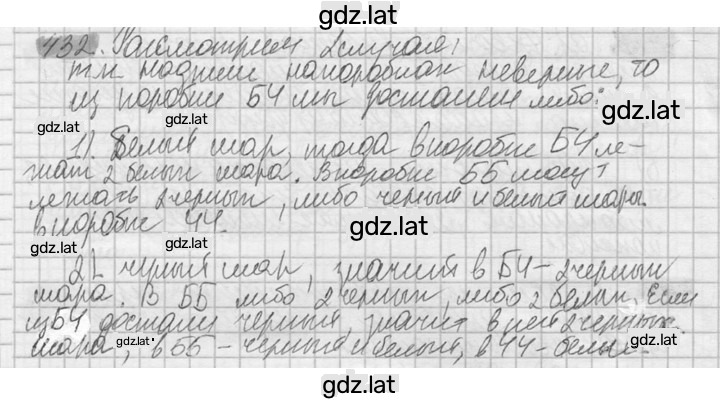 gdz.lat
432. Рассмотрим 2 случая:
т.к. надписи на коробках неверные, то
из коробки БЧ мы достанем либо:
gdz.lat gdz.lat gdz.lat
1). Белый шар, тогда в коробке БЧ ле-
жат 2 белых шара. В коробке ББ могут
лежать 2 черных, либо черный и белый шары.
gdz.lat gdz.lat
в коробке ЧЧ.
gdz.lat
gdz.lat gdz.lat
2). черный шар, значит в БЧ - 2 черных
шара. В ББ либо 2 черных, либо 2 белых. Если
gdz.lat
из БЧ достали черный, значит в ней 2 черных
шара, в ББ - черный и белый, в ЧЧ - белые.
gdz.lat gdz.lat
gdz.lat